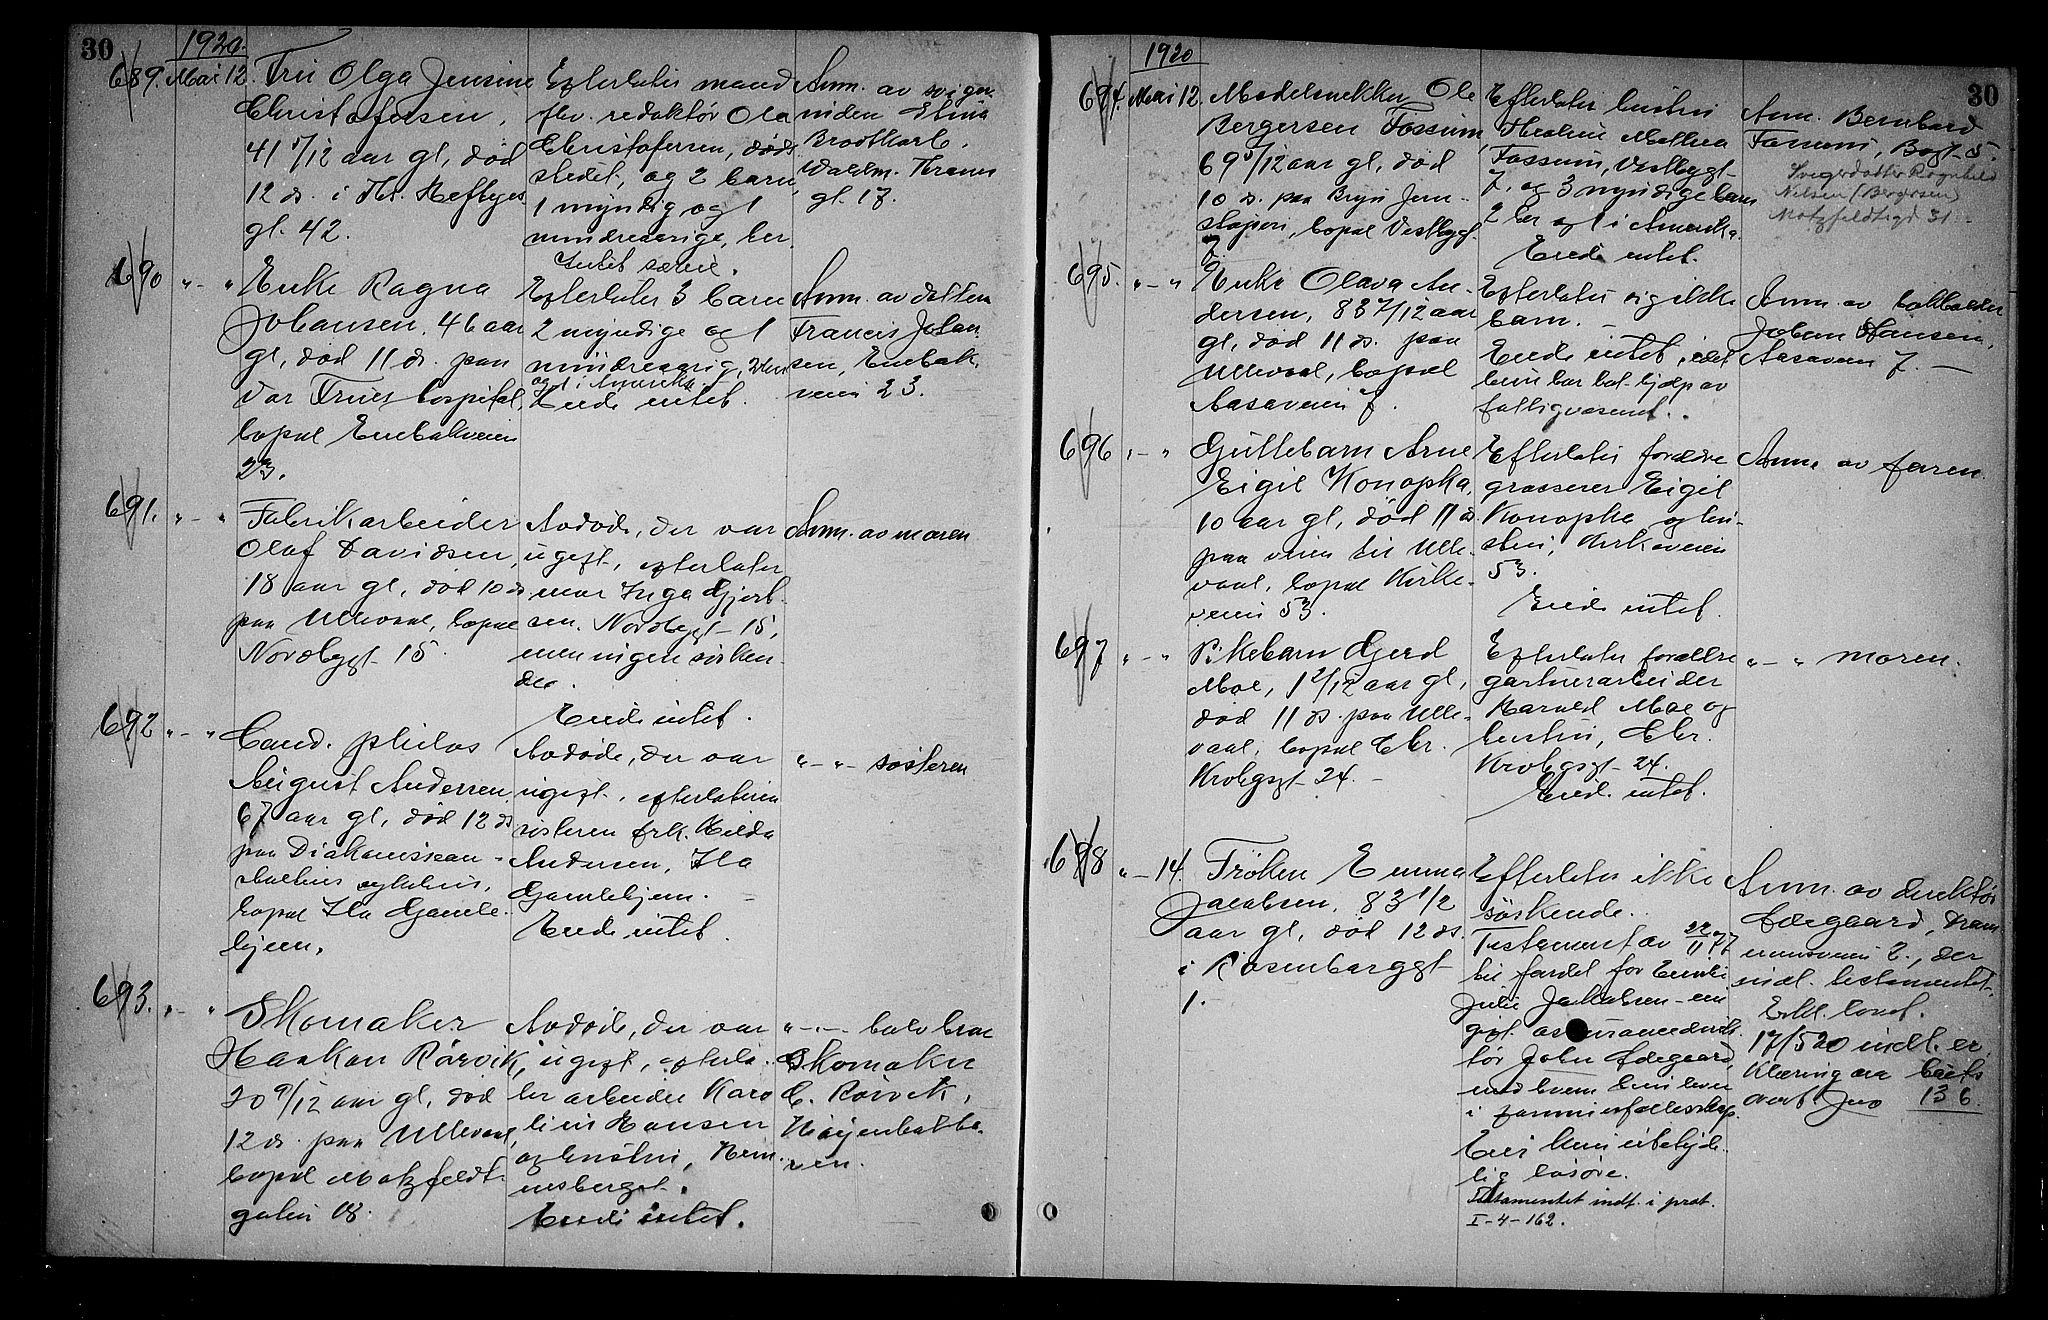 30
1920.
689. Mai 12. Fru Olga Jensine
Christofersen,
41 1/12 aar gl, død
12 ds. i Th. Heftyes
gt. 42.
Efterlater mand
fhv. redaktør Ola
Christofersen, døds
stedet, og 2 barn,
1 myndig og 1
mindreaarige, her.
Intet særeie.
Anm. av sviger
inden
gt. 17.
690 " - " Enke Ragna
Johansen, 46 aar
gl, død 11 ds. paa
Vor Frues hospital,
bopæl Enebakveien
23.
Efterlater 3 barn
2 myndige og 1
mindreaarig,
og 1 i Amerika.
Eiede intet.
Anm. av datteren
Francis Johan-
sen, Enebak.
veien 23.
691. " - " Fabrikarbeider
Olaf Davidsen,
18 aar gl, død 10 ds
paa Ullevaal, bopæl
Nordbygt 15.
Avdøde, der var
ugift, efterlater
mor Inga Gjert-
sen, Nordbygt - 15,
men ingen søsken-
de.
Eiede intet.
Anm. av moren
692 " - " Cand. philos
August Andersen,
67 aar gl, død 12 ds
paa Diakonissean-
staltens sykehus,
bopæl Ila Gamle-
hjem.
Avdøde, der var
ugift, efterlater en
søsteren frk. Hilda
Andersen, Ila
Gamlehjem. -
Eiede intet.
" - " - søsteren
693. " - " Skomaker
Haakon Rørvik,
20 9/12 aar gl, død
12 ds. paa Ullevaal,
bopæl Motzfeldt-
gaten 18.
Avdøde, der var
ugift, efterla-
ter arbeider Karo
lius Hansen
og hustru,
Eiede intet.
" - " - halvbror
Skomaker
C. Rørvik,
30
1920
694. Mai 12. Modelsnekker Ole
Bergersen Fossum,
69 5/12 aar gl, død
10 ds. paa Bryn Jern-
støperi, bopæl Vestbygt.
7.
Efterlater hustru
Thealine Mathea
Fossum, Vestbygt-
7. og 3 myndige barn
2 her og 1 i Amerika.
Eiede intet.
Anm. Bernhard
Fossum, Bogt- 5.
Svigerdatter Ragnhild
Nilsen (Bergersen)
Motzfeldtsgd 31 -
695. " - " Enke Olava An-
dersen, 83 7/12 aar
gl, død 11 ds. paa
Ullevaal, bopæl
Aasaveien 7.
Efterlater sig ikke
barn. -
Eiede intet, idet
hun har hat hjelp av
fattigvæsenet.
Anm. av bokholder
Johan Hansen,
Aasaveien 7. -
696 " - " Guttebarn Arne
Eigil Konopka,
10 aar gl, død 11 ds.
paa veien til Ulle-
vaal, bopæl Kirke-
veien 53.
Efterlater forældre
grosserer Eigil
Konopka og hu-
stru, Kirkeveien
53.
Eiede intet.
Anm. av faren.
697 " - " Pikebarn Gjerd
Moe, 1 2/12 aar gl,
død 11 ds. paa Ulle-
vaal, bopæl Chr.
Krohgsgt - 24. -
Efterlater forældre
gartnerarbeider
Harald Moe og
hustru, Chr.
Krohgsgt - 24.
Eiede intet.
" - " moren.
698 " - 14. Frøken Emma
Jacobsen, 83 1/2
aar gl, død 12 ds.
i Rosenborggt
1. -
Efterlater ikke
søskende.
Testament av 22/11 77
til fordel for Emili
Julie Jakobsen - nu
gift assurancedirek-
tør John Ødegaard,
med hvem hun lever
i formuesfællesskap.
Eier kun ubetyde-
lig løsøre.
Testamentet indt. i prot.
I - 4 - 162.
Anm. av direktør
Ødegaard, Dram-
mensveien 2, der
indl. testamentet.
17/5 20 indl. er-
klæring om
136.